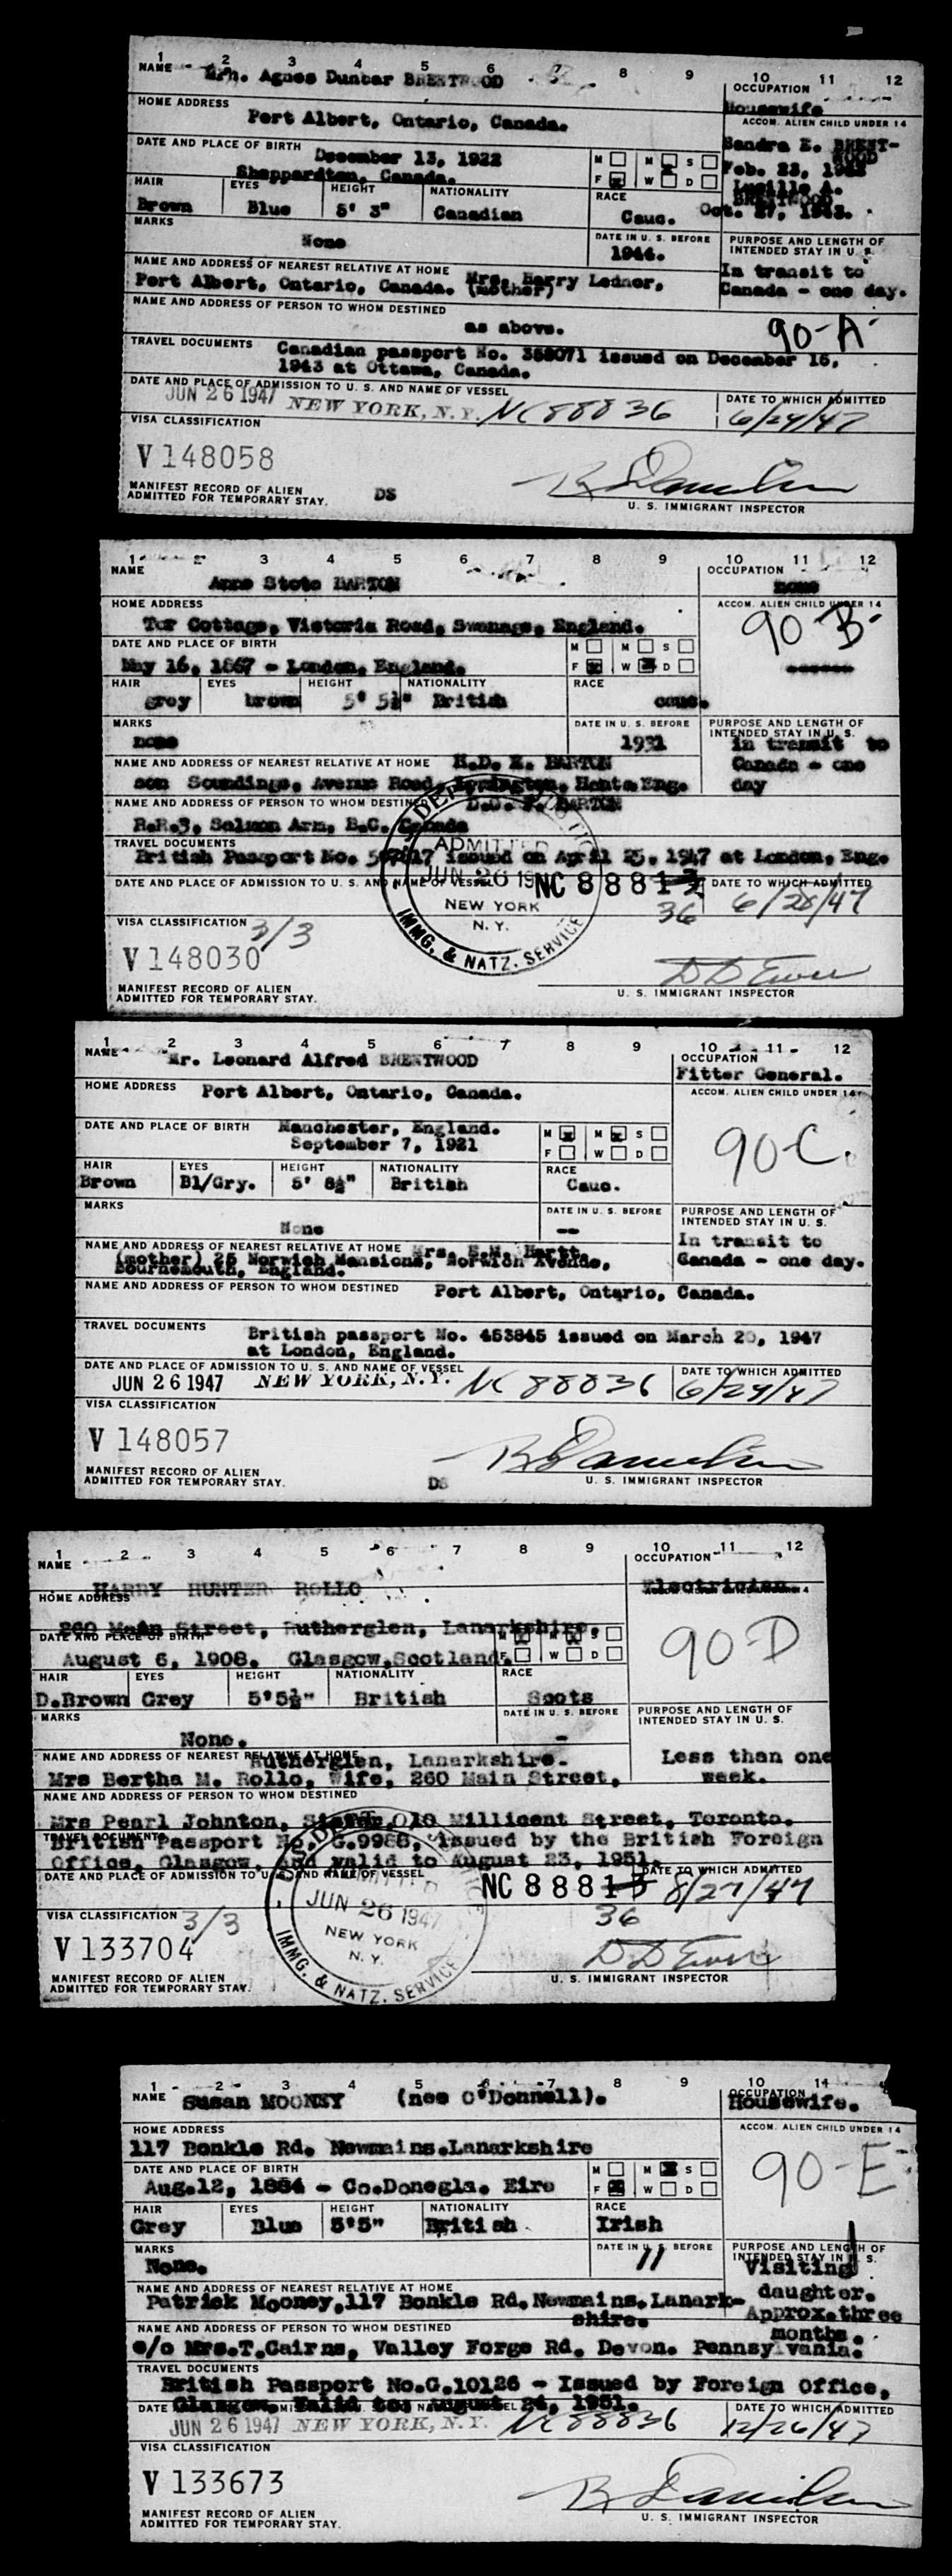 1 2 3 4 5 6 7 8 9 10 11 12
NAME Mrs. Agnes Dunbar BRENTWOOD
OCCUPATION
Housewife
HOME ADDRESS
Port Albert, Ontario, Canada.
ACCOM. ALIEN CHILD UNDER 14
Sandra E. BRENT-
WOOD
Feb. 23,
Lucille A.
BRENTWOOD
Oct. 27, 1943.
DATE AND PLACE OF BIRTH December 13, 1922
Sheppardton, Canada.
M M S
F W D
HAIR EYES HEIGHT NATIONALITY RACE
Brown Blue 5' 3" Canadian Cauc.
MARKS
None
DATE IN U. S. BEFORE
1944.
PURPOSE AND LENGTH OF
INTENDED STAY IN U. S.
In transit to
Canada - one day.
NAME AND ADDRESS OF NEAREST RELATIVE AT HOME Mrs. Harry Lednor,
Port Albert, Ontario, Canada. (mother)
NAME AND ADDRESS OF PERSON TO WHOM DESTINED
as above.
90-A
TRAVEL DOCUMENTS Canadian passport No. 358071 issued on December 15,
1943 at Ottawa, Canada.
DATE AND PLACE OF ADMISSION TO U. S. AND NAME OF VESSEL
JUN 26 1947 NEW YORK, N.Y. NC 88836
DATE TO WHICH ADMITTED
6/29/47
VISA CLASSIFICATION
V 148058
MANIFEST RECORD OF ALIEN
ADMITTED FOR TEMPORARY STAY.
DS
U. S. IMMIGRANT INSPECTOR
1 2 3 4 5 6 7 8 9 10 11 12
NAME
Anne Stote BARTON
OCCUPATION
none
HOME ADDRESS
Tor Cottage, Victoria Road, Swanage, England.
ACCOM. ALIEN CHILD UNDER 14
90-B
DATE AND PLACE OF BIRTH
May 16, 1867 - London, England.
M M S
F W D
HAIR EYES HEIGHT NATIONALITY RACE
grey brown 5' 5½" British cauc.
MARKS
none
DATE IN U. S. BEFORE
1931
PURPOSE AND LENGTH OF
INTENDED STAY IN U. S.
in transit to
Canada - one
day
NAME AND ADDRESS OF NEAREST RELATIVE AT HOME H.D. BARTON
son Soundings, Avenue Road, Eng.
NAME AND ADDRESS OF PERSON TO WHOM DESTINED BARTON
R.R.3, Salmon Arm, B.C. Canada
TRAVEL DOCUMENTS
British Passport No. issued on April 25, 1947 at London, Eng.
DATE AND PLACE OF ADMISSION TO U. S. AND NAME OF VESSEL
ADMITTED
JUN 26 19
NEW YORK
N. Y.
IMMG. & NATZ. SERVICE
NC 88813
36
DATE TO WHICH ADMITTED
6/28/47
VISA CLASSIFICATION 3/3
V 148030
MANIFEST RECORD OF ALIEN
ADMITTED FOR TEMPORARY STAY.
U. S. IMMIGRANT INSPECTOR
1 2 3 4 5 6 7 8 9 10 11 12
NAME Mr. Leonard Alfred BRENTWOOD
OCCUPATION
Fitter General.
HOME ADDRESS Port Albert, Ontario, Canada.
ACCOM. ALIEN CHILD UNDER 14
90-C.
DATE AND PLACE OF BIRTH Manchester, England.
September 7, 1921
M M S
F W D
HAIR EYES HEIGHT NATIONALITY RACE
Brown Bl/Gry. 5' 8½" British Cauc.
MARKS
None
DATE IN U. S. BEFORE
--
PURPOSE AND LENGTH OF
INTENDED STAY IN U. S.
In transit to
Canada - one day.
NAME AND ADDRESS OF NEAREST RELATIVE AT HOME Mrs. E.M. Hartt
(mother) 25 Norwich Mansions, Norwich Avenue,
Bournemouth, England.
NAME AND ADDRESS OF PERSON TO WHOM DESTINED Port Albert, Ontario, Canada.
TRAVEL DOCUMENTS British passport No. 453845 issued on March 20, 1947
at London, England.
DATE AND PLACE OF ADMISSION TO U. S. AND NAME OF VESSEL
JUN 26 1947 NEW YORK, N.Y. NC 88836
DATE TO WHICH ADMITTED
6/29/47
VISA CLASSIFICATION
V 148057
MANIFEST RECORD OF ALIEN
ADMITTED FOR TEMPORARY STAY.
DS
U. S. IMMIGRANT INSPECTOR
1 2 3 4 5 6 7 8 9 10 11 12
NAME
HARRY HUNTER ROLLO
OCCUPATION
Electrician
HOME ADDRESS
260 Main Street, Rutherglen, Lanarkshire.
90-D
DATE AND PLACE OF BIRTH
August 6, 1908. Glasgow, Scotland.
M M S
F W D
HAIR EYES HEIGHT NATIONALITY RACE
D.Brown Grey 5'5½" British Scots
MARKS
None.
DATE IN U. S. BEFORE
-
PURPOSE AND LENGTH OF
INTENDED STAY IN U. S.
Less than one
week.
NAME AND ADDRESS OF NEAREST RELATIVE AT HOME
Rutherglen, Lanarkshire.
Mrs Bertha M. Rollo, Wife, 260 Main Street,
NAME AND ADDRESS OF PERSON TO WHOM DESTINED
Mrs Pearl Johnton, Sister, 018 Millicent Street, Toronto.
TRAVEL DOCUMENTS
British Passport No. C.9988, issued by the British Foreign
Office, Glasgow, and valid to August 23, 1951.
DATE AND PLACE OF ADMISSION TO U. S. AND NAME OF VESSEL
ADMITTED
JUN 26 1947
NEW YORK
N. Y.
IMMG. & NATZ. SERVICE
NC 88813
36
DATE TO WHICH ADMITTED
8/27/47
VISA CLASSIFICATION 3/3
V 133704
MANIFEST RECORD OF ALIEN
ADMITTED FOR TEMPORARY STAY.
U. S. IMMIGRANT INSPECTOR
1 2 3 4 5 6 7 8 9 10 14
NAME Susan MOONEY (nee O'Donnell).
OCCUPATION
Housewife.
HOME ADDRESS
117 Bonkle Rd. Newmains.Lanarkshire
ACCOM. ALIEN CHILD UNDER 14
90-E
DATE AND PLACE OF BIRTH
Aug.12, 1884 - Co.Donegla. Eire
M M S
F W D
HAIR EYES HEIGHT NATIONALITY RACE
Grey Blue 5'5" British Irish
MARKS
None.
DATE IN U. S. BEFORE
11
PURPOSE AND LENGTH OF
INTENDED STAY IN U. S.
Visiting
daughter.
Approx.three
months.
NAME AND ADDRESS OF NEAREST RELATIVE AT HOME
Patrick Mooney,117 Bonkle Rd.Newmains.Lanark-
shire.
NAME AND ADDRESS OF PERSON TO WHOM DESTINED
c/o Mrs.T.Cairns, Valley Forge Rd. Devon. Pennsylvania.
TRAVEL DOCUMENTS
British Passport No.C.10126 - Issued by Foreign Office,
Glasgow. Valid to: August 24, 1951.
JUN 26 1947 NEW YORK, N.Y. NC 88836
DATE TO WHICH ADMITTED
12/26/47
VISA CLASSIFICATION
V 133673
MANIFEST RECORD OF ALIEN
ADMITTED FOR TEMPORARY STAY.
U. S. IMMIGRANT INSPECTOR